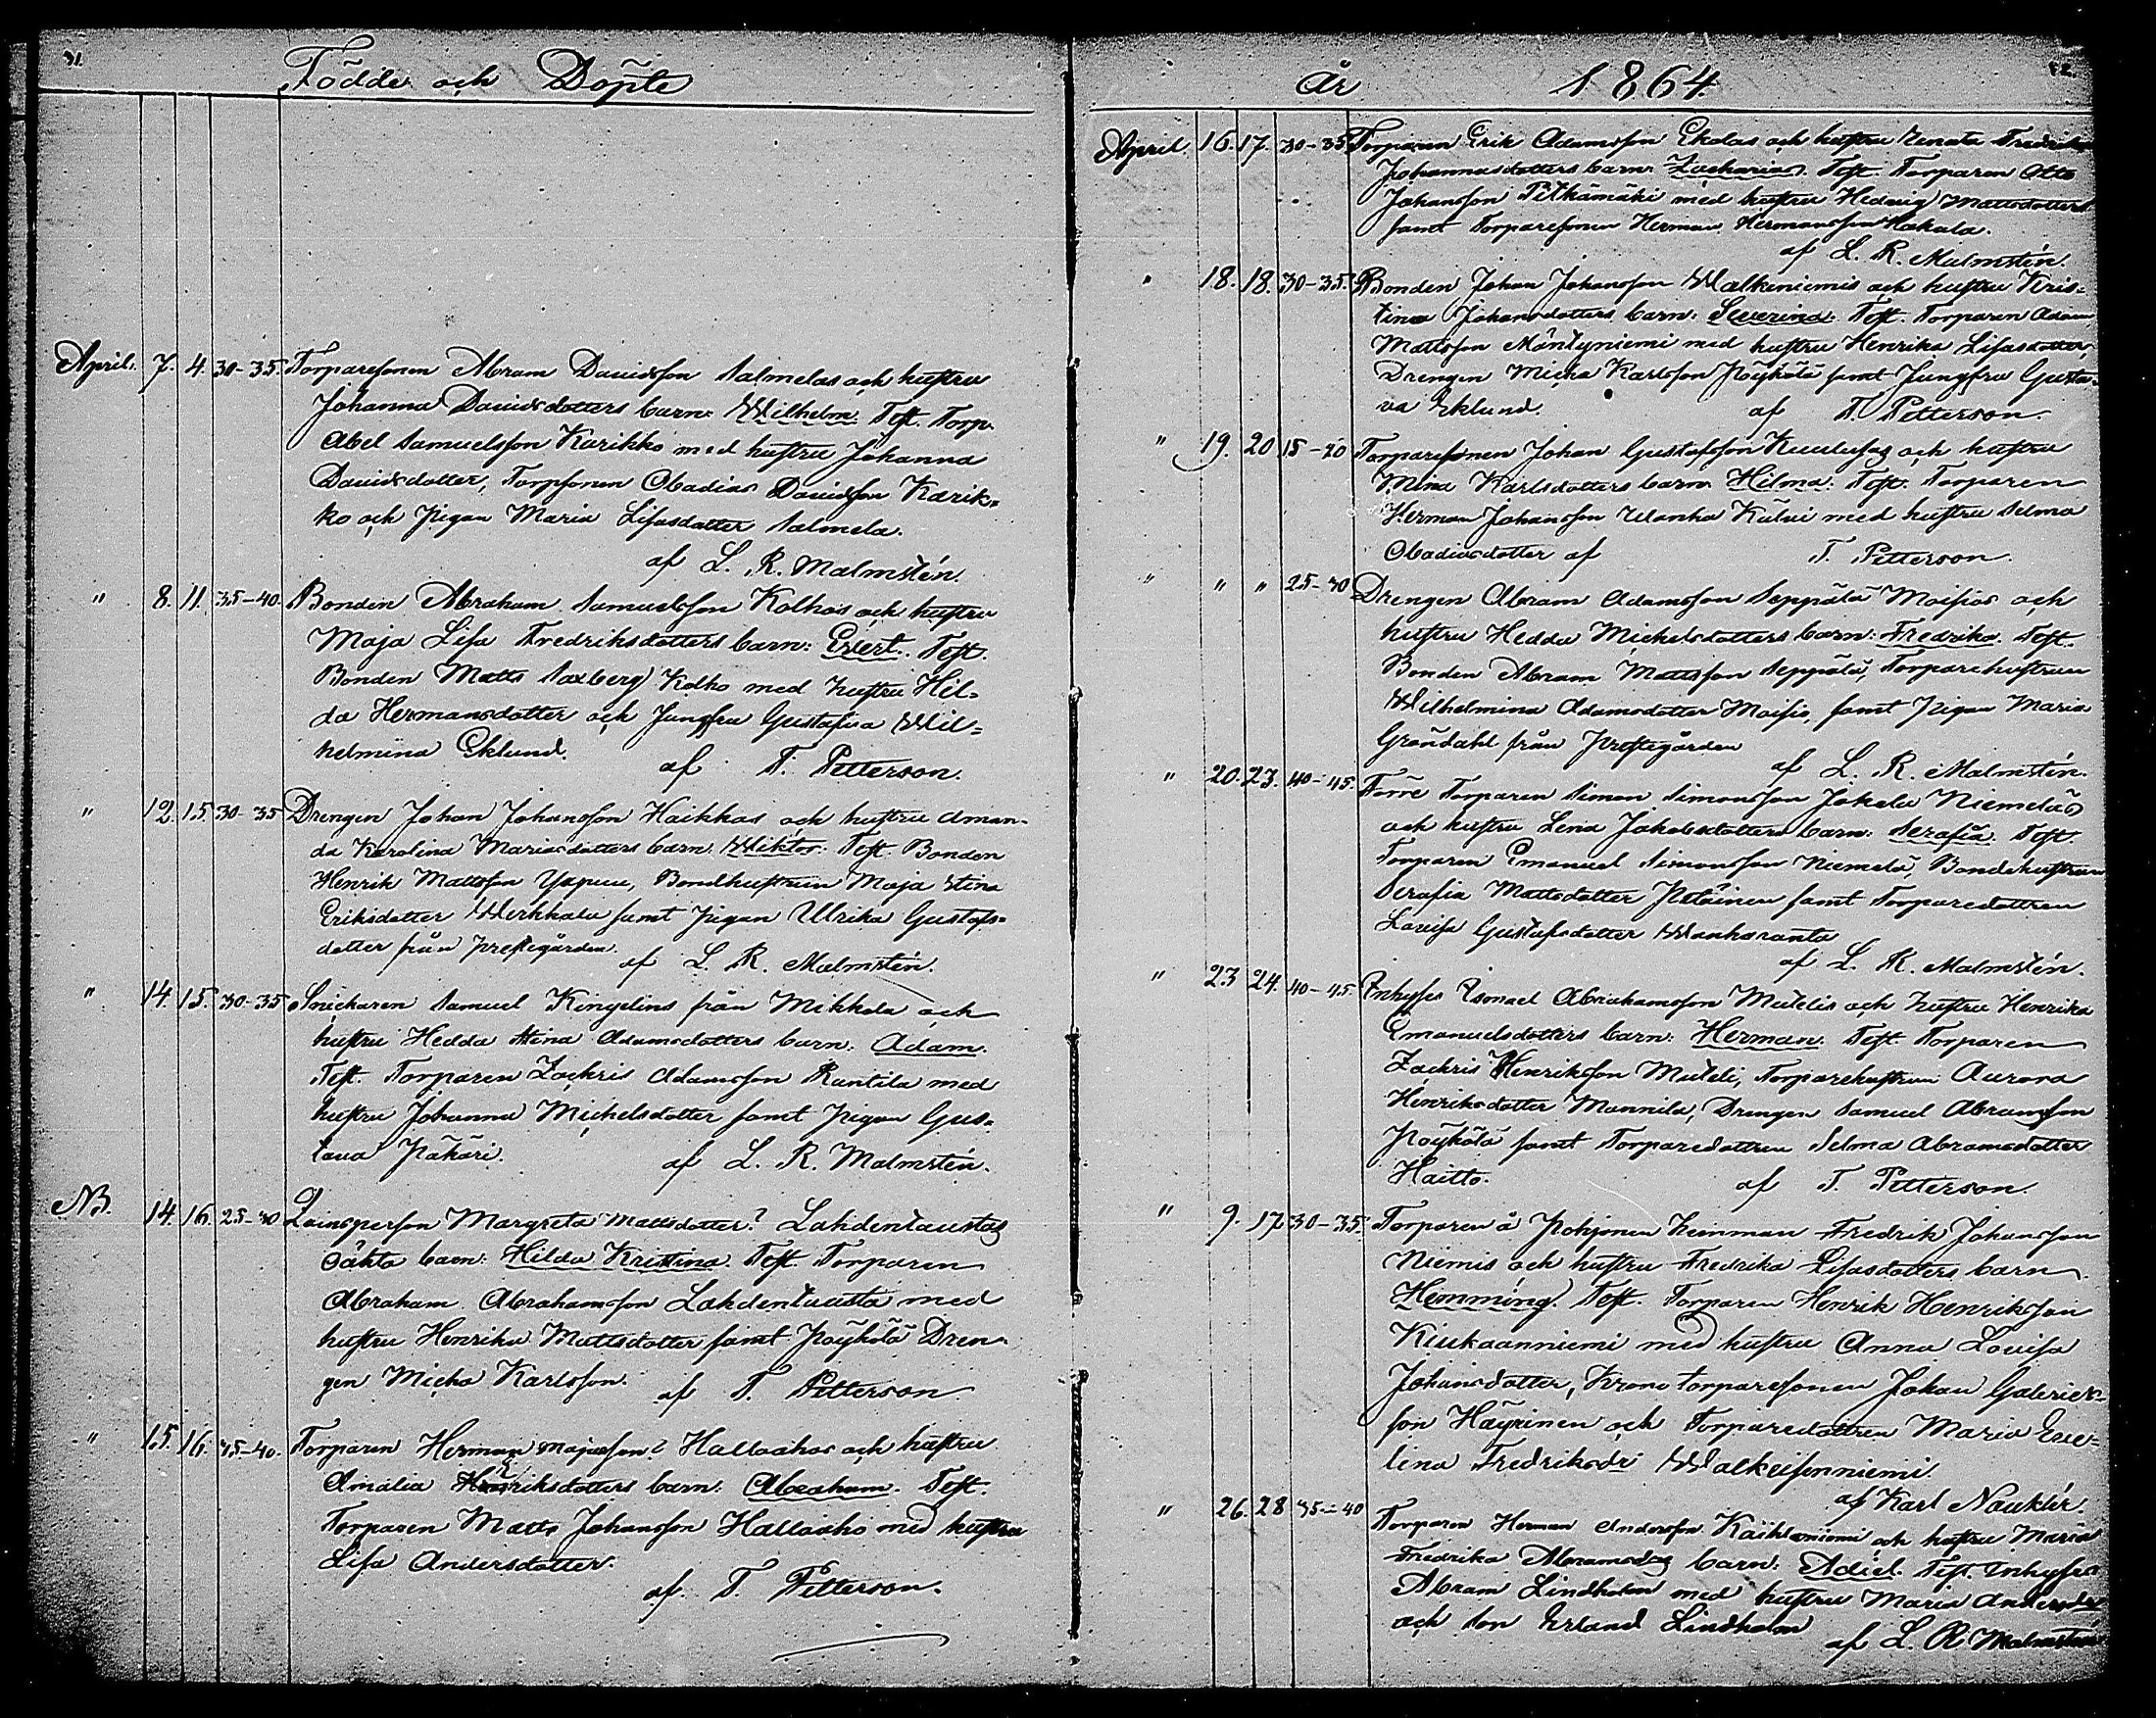 Födde och Döpte
April. 7. 4. 30-35. Torparesonen Abram Davidsson Salmelas och hustru
Johanna Davidsdotters barn: Wilhelm. Test. Torp.
Abel Samuelsson Karikko med hustru Johanna
Davidsdotter, Torpsonen Obadias Davidsson Karik=
ko och Pigan Maria Lisasdotter Salmela.
af L. R. Malmstén.
" 8. 11. 35-40. Bonden Abraham Samuelsson Kolhos och hustru
Maja Lisa Fredriksdotters barn: Evert. Test.
Bonden Matts Saxberg Kolho med hustru Hil=
da Hermansdotter och Jungfru Gustafva Wil=
helmina Eklund. af T. Petterson.
" 12. 15. 30-35 Drengen Johan Johansson Haikkas och hustru Aman-
da Karolina Mariasdotters barn. Wiktor. Test. Bonden
Henrik Mattsson Yxpuu, Bondhustrun Maja Stina
Eriksdotter Werkkala samt Pigan Ulrika Gustafs=
dotter från prestegården. af L. R. Malmstén.
" 14. 15. 30-35 Snickaren Samuel Kingelins från Mikkola och
hustru Hedda Stina Adamsdotters barn: Adam.
Test. Torparen Zachris Adamsson Rantila med
hustru Johanna Michelsdotter samt Pigan Gus=
tava Pakari. af L. R. Malmstén.
NB. 14. 16. 25-30 Qvinsperson Margreta Mattsdotter? Lahdentaustas
oäkta barn: Hilda Kristina. Test. Torparen
Abraham Abrahamsson Lahdentausta med
hustru Henrika Mattsdotter samt Pöyhölä Dren=
gen Micha Karlsson. af T. Petterson
" 15. 16. 35-40. Torparen Herman Majasson? Hallaahos och hustru
Amalia Henriksdotters barn: Abraham. Test.
Torparen Matts Johansson Hallaaho med hustru
Lisa Andersdotter.
af T. Petterson.
År 1864.
April. 16. 17. 30-35 Torparen Erik Adamsson Ekolas och hustru Renata Fredrika
Johannasdotters barn Zacharias. Test. Torparen Otto
Johansson Pitkämäki med hustru Hedvig Mattsdotter
samt Torparesonen Herman Hermansson Hakala.
af L. R. Malmstén.
" 18. 18. 30-35. Bonden Johan Johansson Walkeniemis och hustru Kris=
tina Johansdotters barn: Severina. Test. Torparen Adam
Mattsson Mäntyniemi med hustru Henrika Lisasdotter,
Drengen Micka Karlsson Pöyhölä samt Jungfru Gusta=
va Eklund. af T. Petterson.
" 19. 20 15-20 Torparesonen Johan Gustafsson och hustru
Mina Karlsdotters barn Hilma. Test. Torparen
Herman Johansson Wanha Kulvi med hustru Selma
Obadiasdotter af T. Petterson.
" " " 25-30 Drengen Abram Adamsson Seppälä Moisios och
hustru Hedda Michelsdotters barn: Fredrika. Test.
Bonden Abram Mattsson Seppälä, Torparehustrun
Wilhelmina Adamsdotter Moisio, samt Pigan Maria
Gröndahl från Prestegården
af L. R. Malmstén.
" 20. 23. 40-45. Förre Torparen Simon Simonsson Jokela Niemeläs
och hustru Lena Jakobsdotters barn: Serafia. Test.
Torparen Emanuel Simonsson Niemelä, Bondehustrun
Serafia Mattsdotter samt Torparedottren
Lovisa Gustafsdotter Wanharanta
af L. R. Malmstén.
" 23 24. 40-45. Inhyses Ismael Abrahamsson Mutelis och hustru Henrika
Emanuelsdotters barn: Herman. Test. Torparen
Zachris Henriksson Muteli, Torparehustrun Aurora
Henriksdotter Mannila, Drengen Samuel Abramsson
Pöyhölä samt Torparedottren Selma Abramsdotter
Haitto. af T. Petterson.
" 9. 17. 30-35. Torparen å Pohjonen hemman Fredrik Johansson
Niemis och hustru Fredrika Lisasdotters barn
Hemming. Test. Torparen Henrik Henriksson
Kiukaanniemi med hustru Anna Lovisa
Johansdotter, Krono torparesonen Johan Gabriels=
son Häyrinen och Torparedottren Maria Eve=
lina Fredriksdr Walkeisenniemi.
af Karl Nauklér.
" 26. 28 35-40 Torparen Herman Andersson Kaihlaniemi och hustru Maria
Fredrika Abramsdrs barn: Adiel. Test. Inhyses
Abram Lindholm med hustru Maria Andersdr
och son Erland Lindholm
af L. R Malmstén